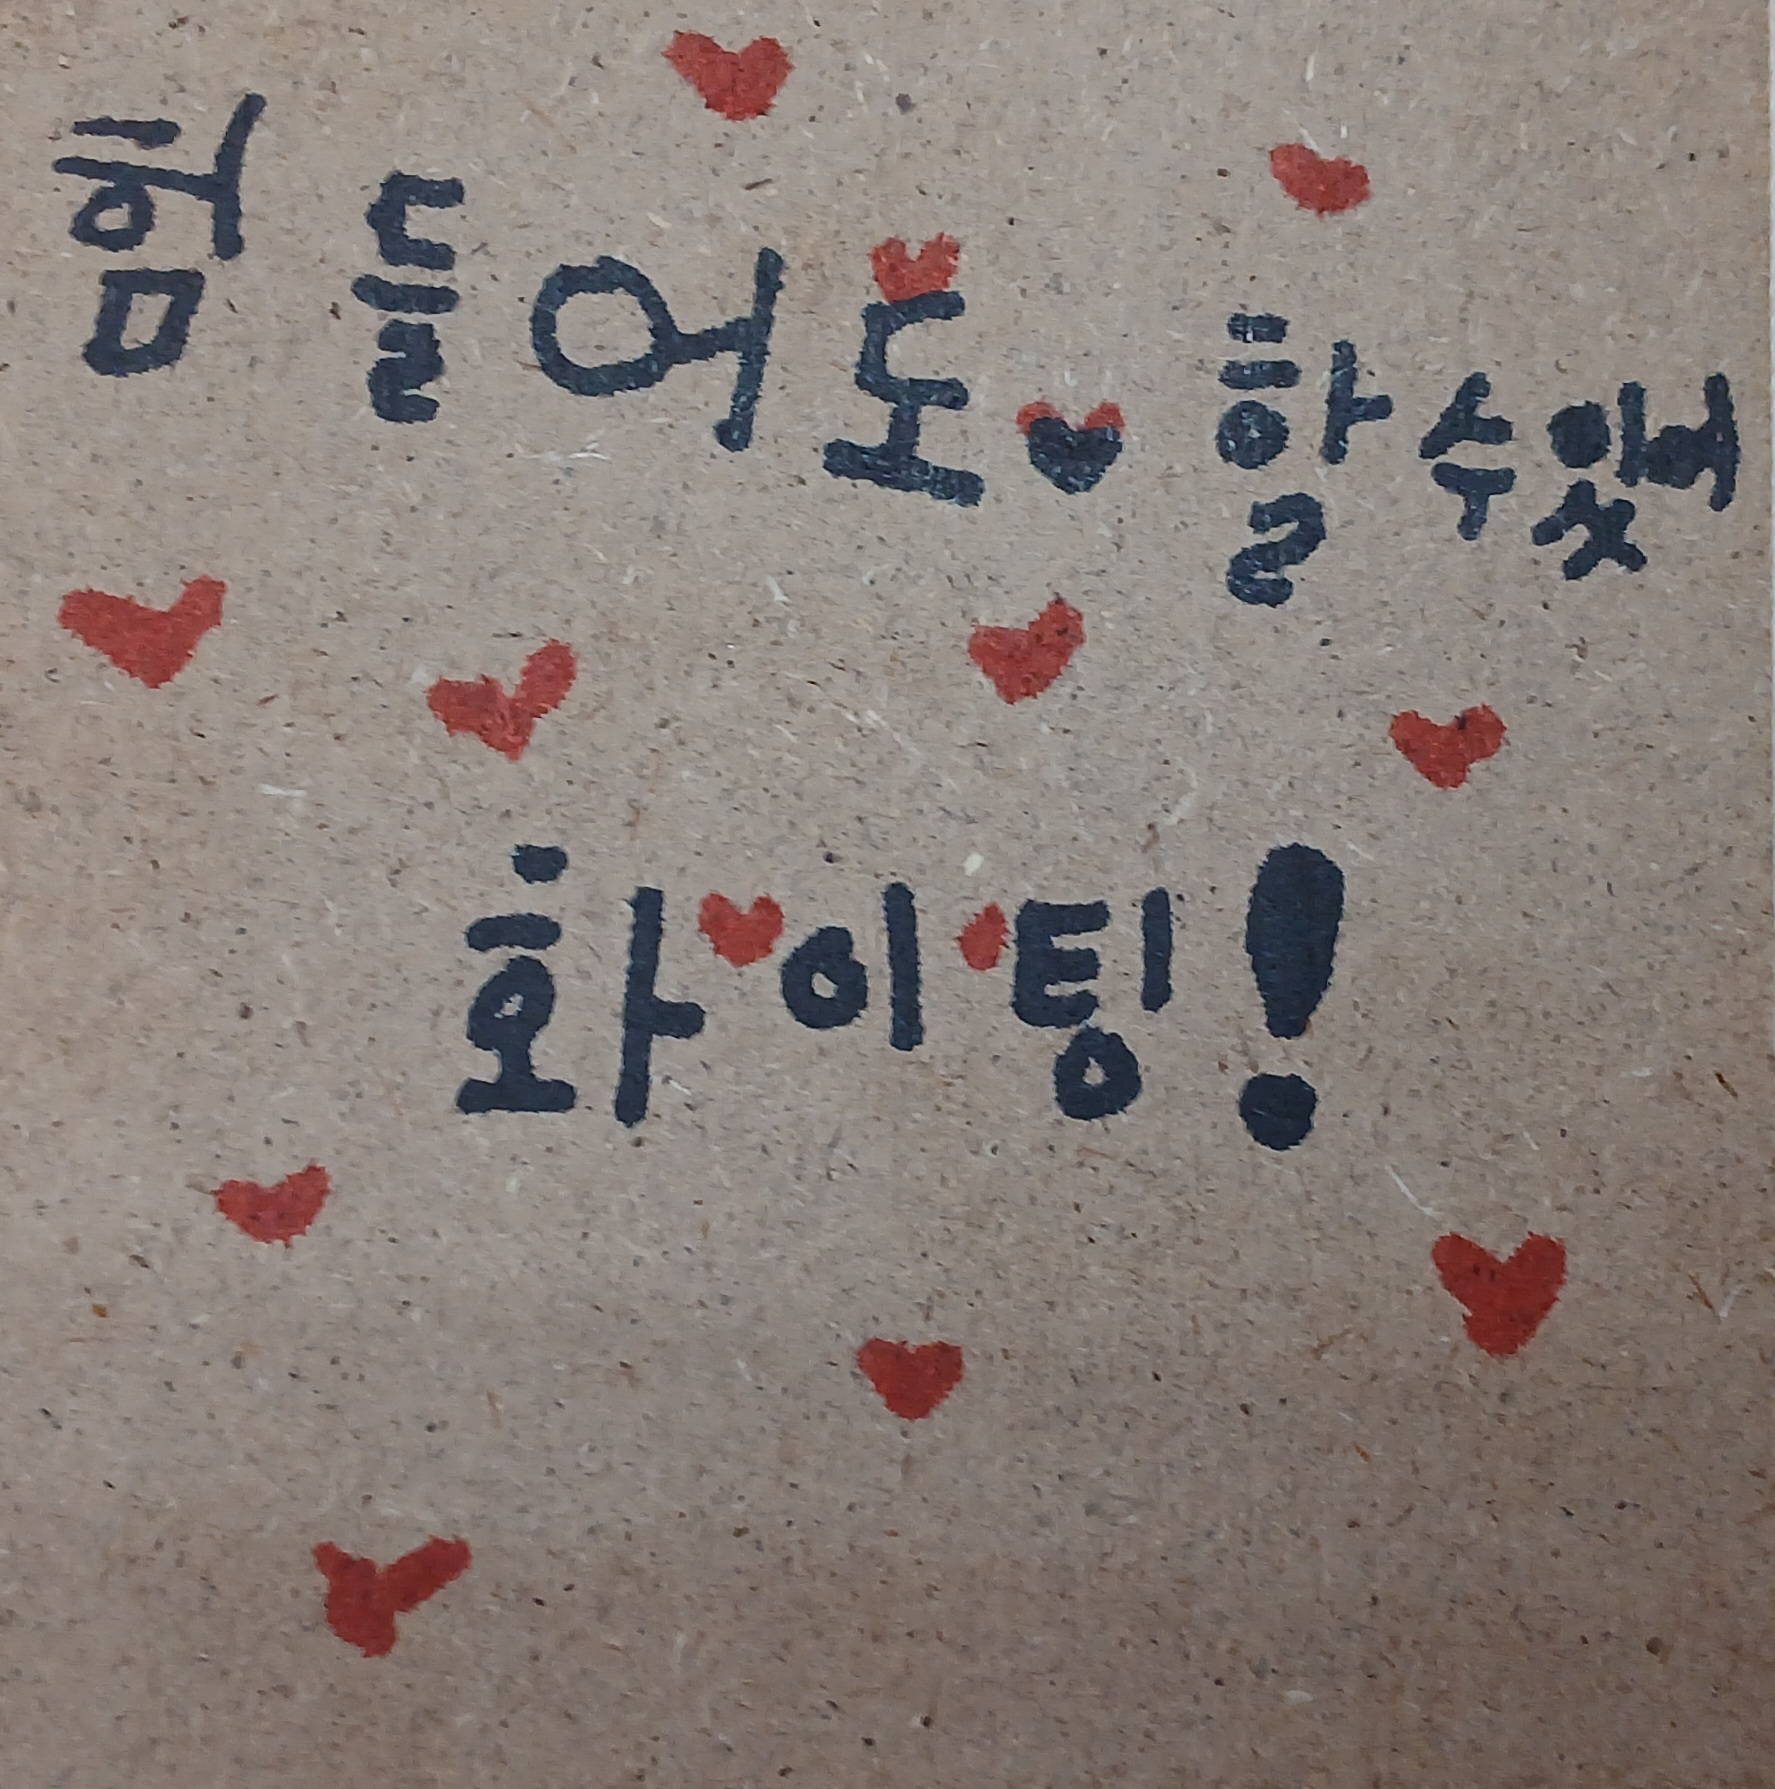 힘들어도 할 수 있어
화이팅!